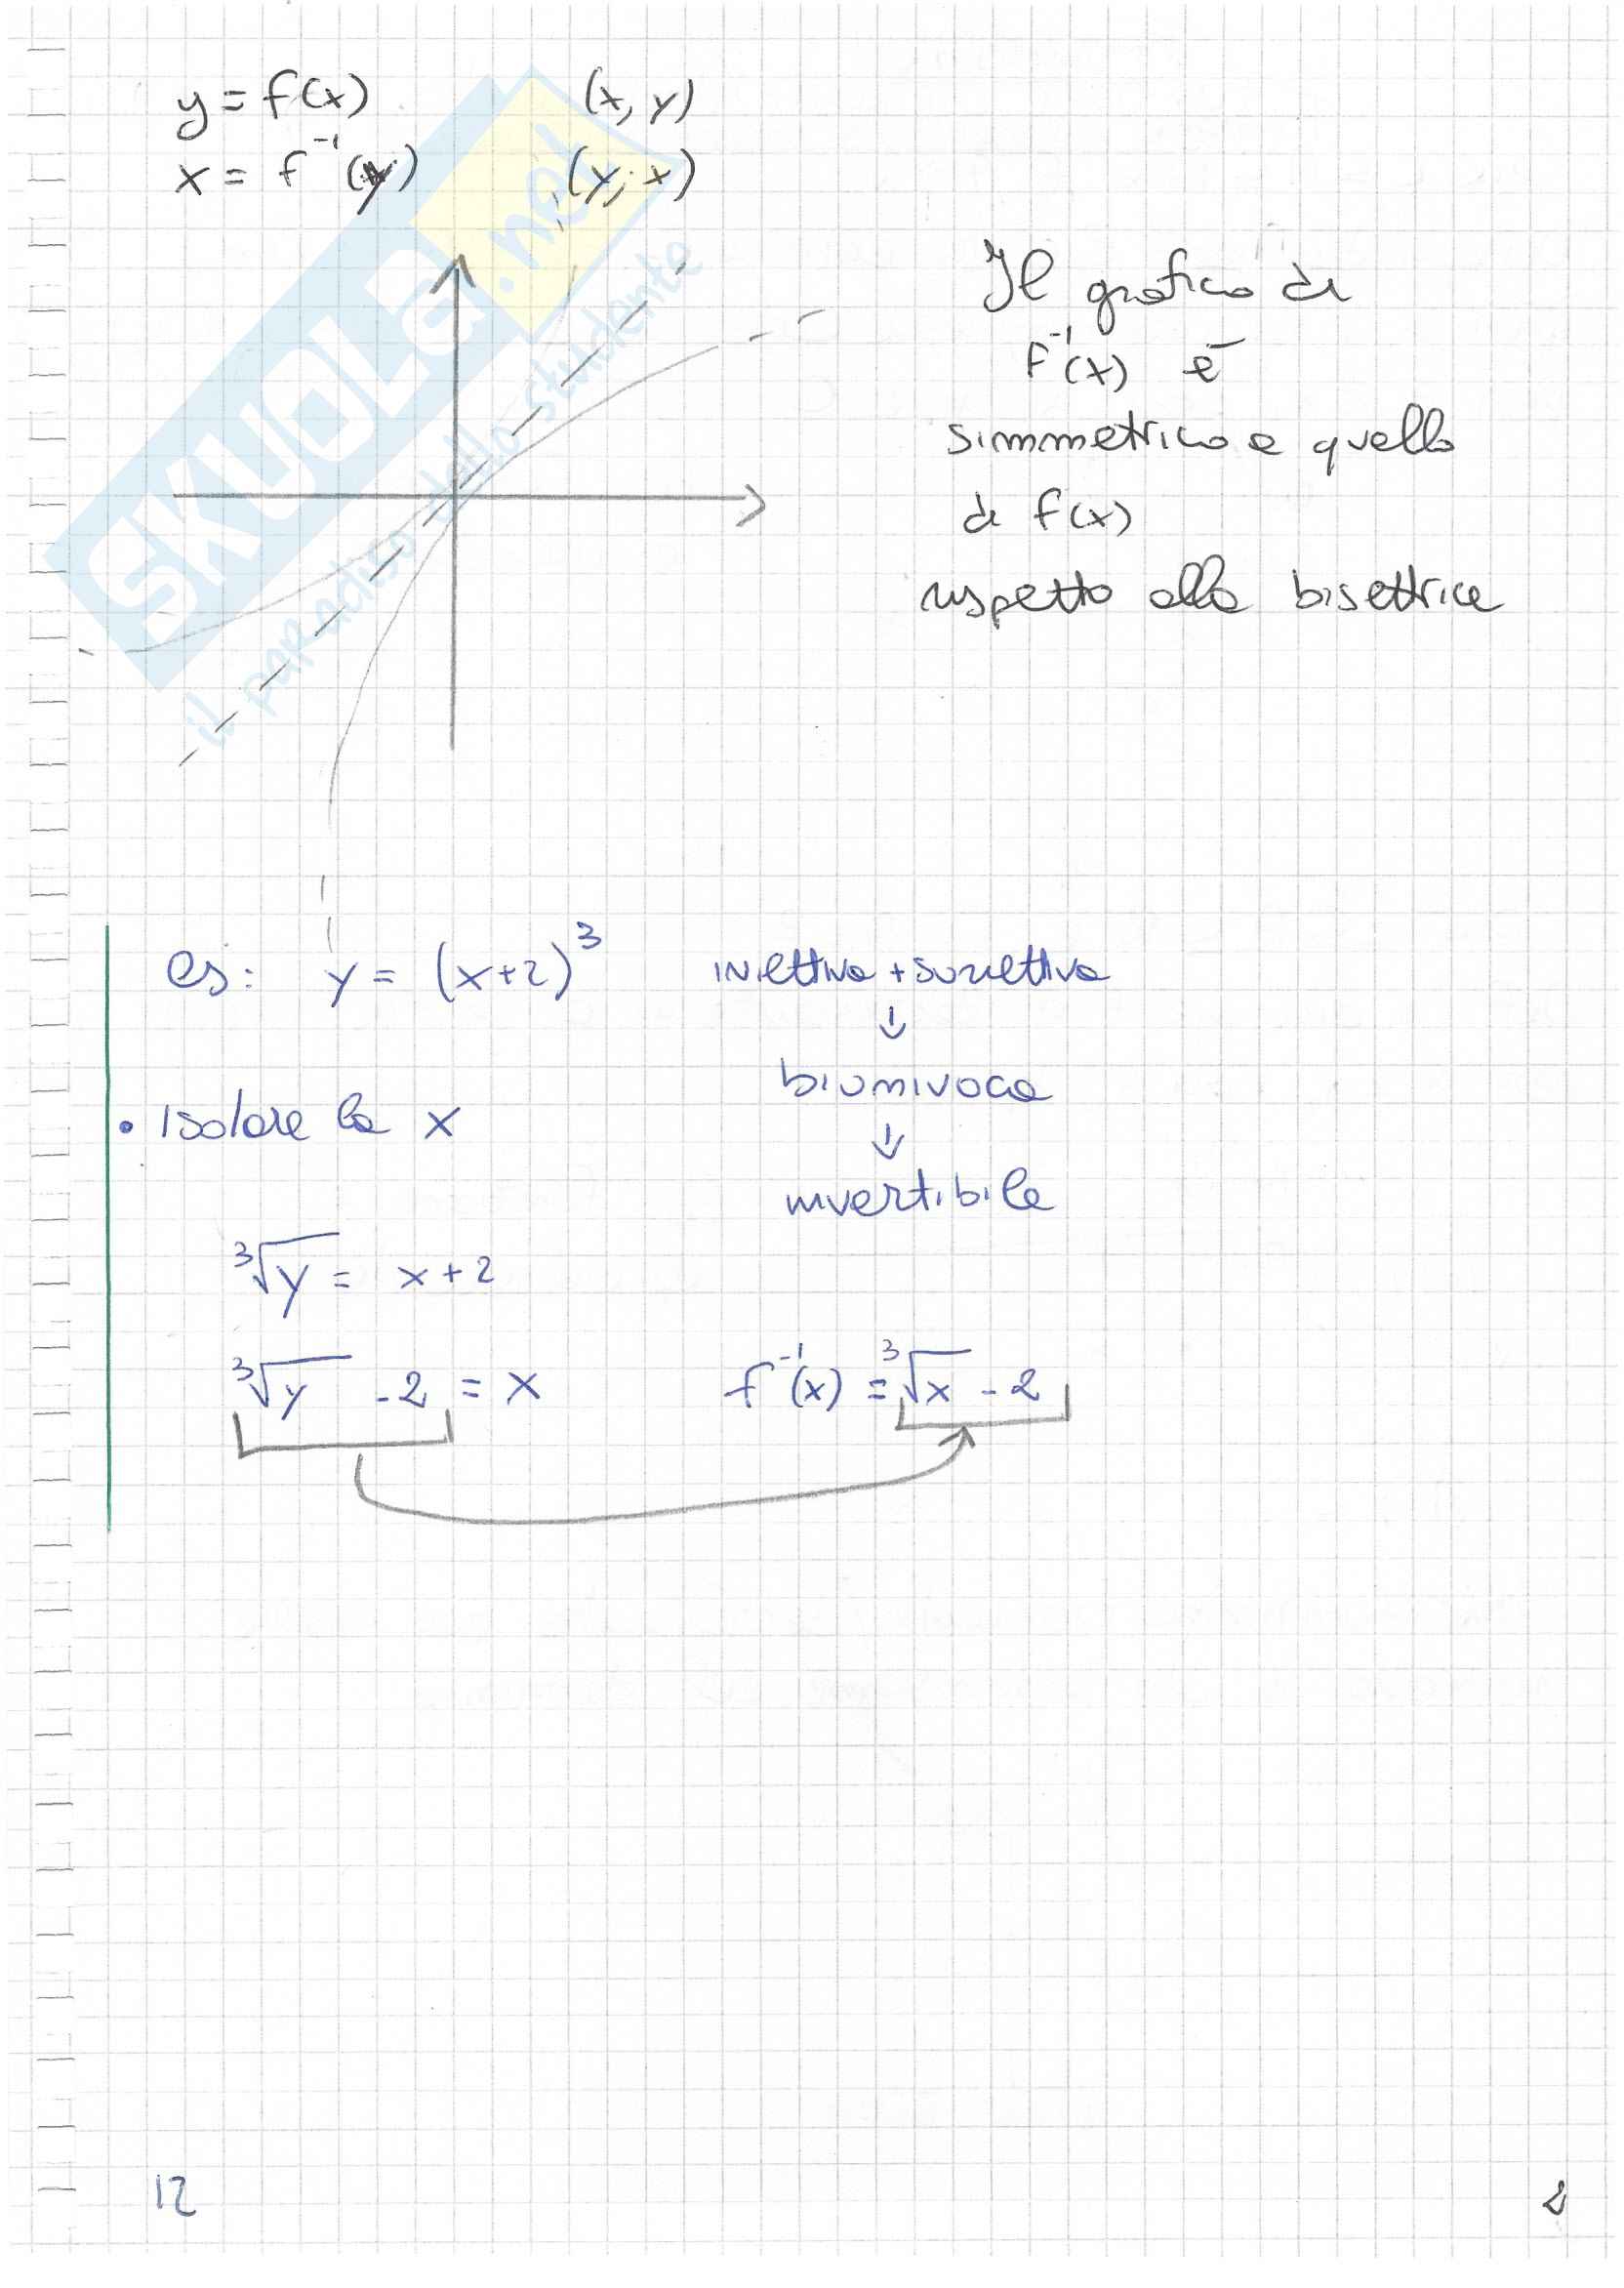 y = f(x) (x, y)
x = f⁻¹(y) (y, x)
SKUOLA.net
il paradiso dello studente
Il grafico di
f⁻¹(x) è
simmetrico a quello
di f(x)
rispetto alla bisettrice
es: y = (x+2)³ iniettiva + suriettiva
↓
biunivoca
• Isolare la x
↓
invertibile
∛y = x+2
∛y -2 = x f⁻¹(x) = ∛x - 2
12